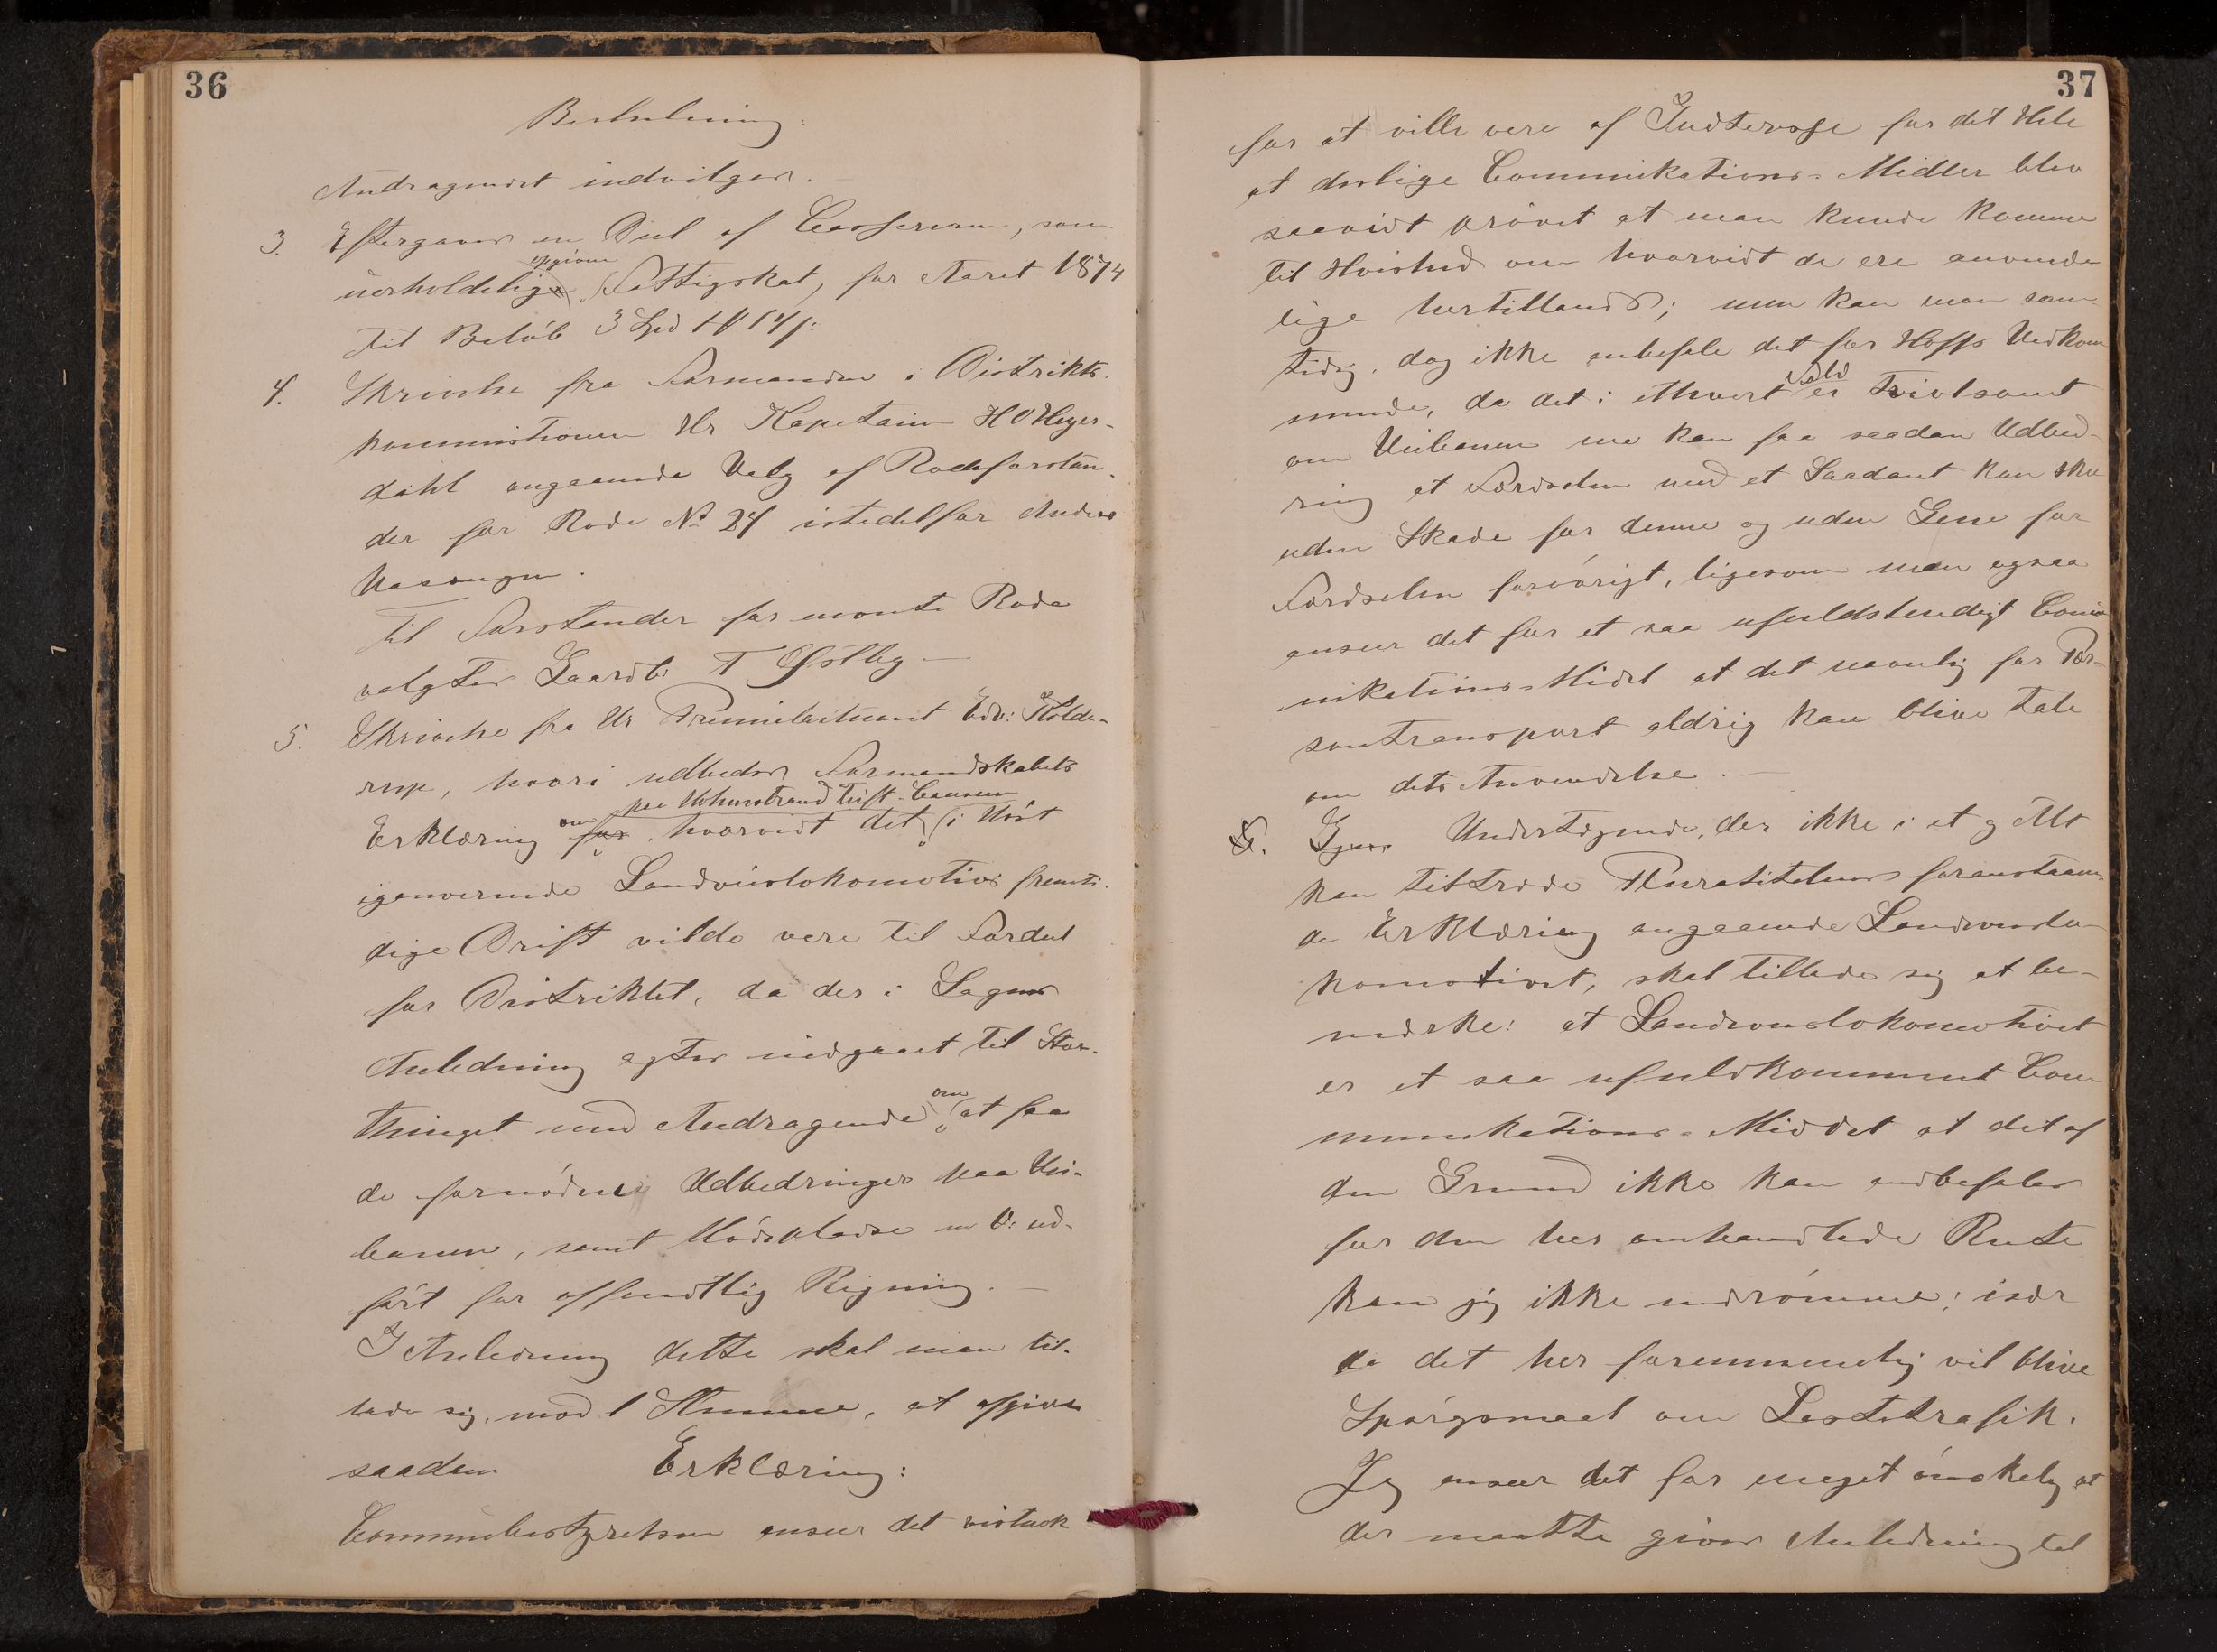 36
Beslutning:
Andragendet indvilges.
3. Eftergaves en Deel af Casserern, som
uerholdelige opgivne Fattigskat, for Aaret 1874
til Beløb 3 Spd
4. Skrivelse fra Formanden i Distrikts-
kommissionen Hr Kapetain H O Heyer-
dahl angaaende Valg af Rodeforstan-
der for Rode No 24 istedetfor Anders
Vasengen.
Til Forstander for nævnte Rode
valgtes Gaardb: T Østby —
5. Skrivelse fra Hr Premierleitnant Edv: Kolde-
rup, hvori udbedes Formandskabets
paa Holmestrand Vitt. banen
Erklæring om for hvorvidt det i Høst
igangværende Landveislokomotivs fremti-
dige Drift vilde være til Fordel
for Distriktet, da der i Sagens
Anledning agtes indgaaet til Stor-
thinget med Andragende om at faa
de fornødne Udbedringer paa Vei-
banen, samt Mødepladse m V: ud-
ført for offendtlig Regning. —
I Anledning dette skal man til-
lade sig, mod 1 Stemme, at afgive
saadan Erklæring:
Communbestyrelsen anseer det vistnok
37
for at ville være af Indteresse for det Hele
at deslige Commnikations-Midler blev
saavidt prøvet at man kunde komme
til Hvished om hvorvidt de ere anvende-
lige hertillands; men kan man sam-
tidig dog ikke anbefale det for Hoffs Vedkom-
mende, da det i ethvert Fald er tvivlsomt
om Veibanen me kan faa saadan Udbed-
ring at Færdselen med et Saadant kan skee
uden Skade for denne og uden Gene for
Færdselen forøvrigt, ligesom man ogsaa
anseer det for et saa ufuldstendigt Comu-
nikations-Midel at det navnlig for Per-
sontransport aldrig kan blive Tale
om dets Anvendelse. —
Undertegnede, der ikke i et og Alt
kan tiltræde Pluralitetens foranstaaen-
de Erklæring angaaende Landveislo-
komotivet, skal tillade sig at be-
mærke: at Landveislokomotivet
er et saa ufuldkomment Com-
munikations-Middel at det af
den Grund ikke kan andbefales
for den her omhandlede Rute
kan jeg ikke indrømme; især
da det her fornemmelig vil blive
Spørgsmaal om Lastetrafik.
Jeg anseer det for meget ønskelig at
der maatte gives Anledning til